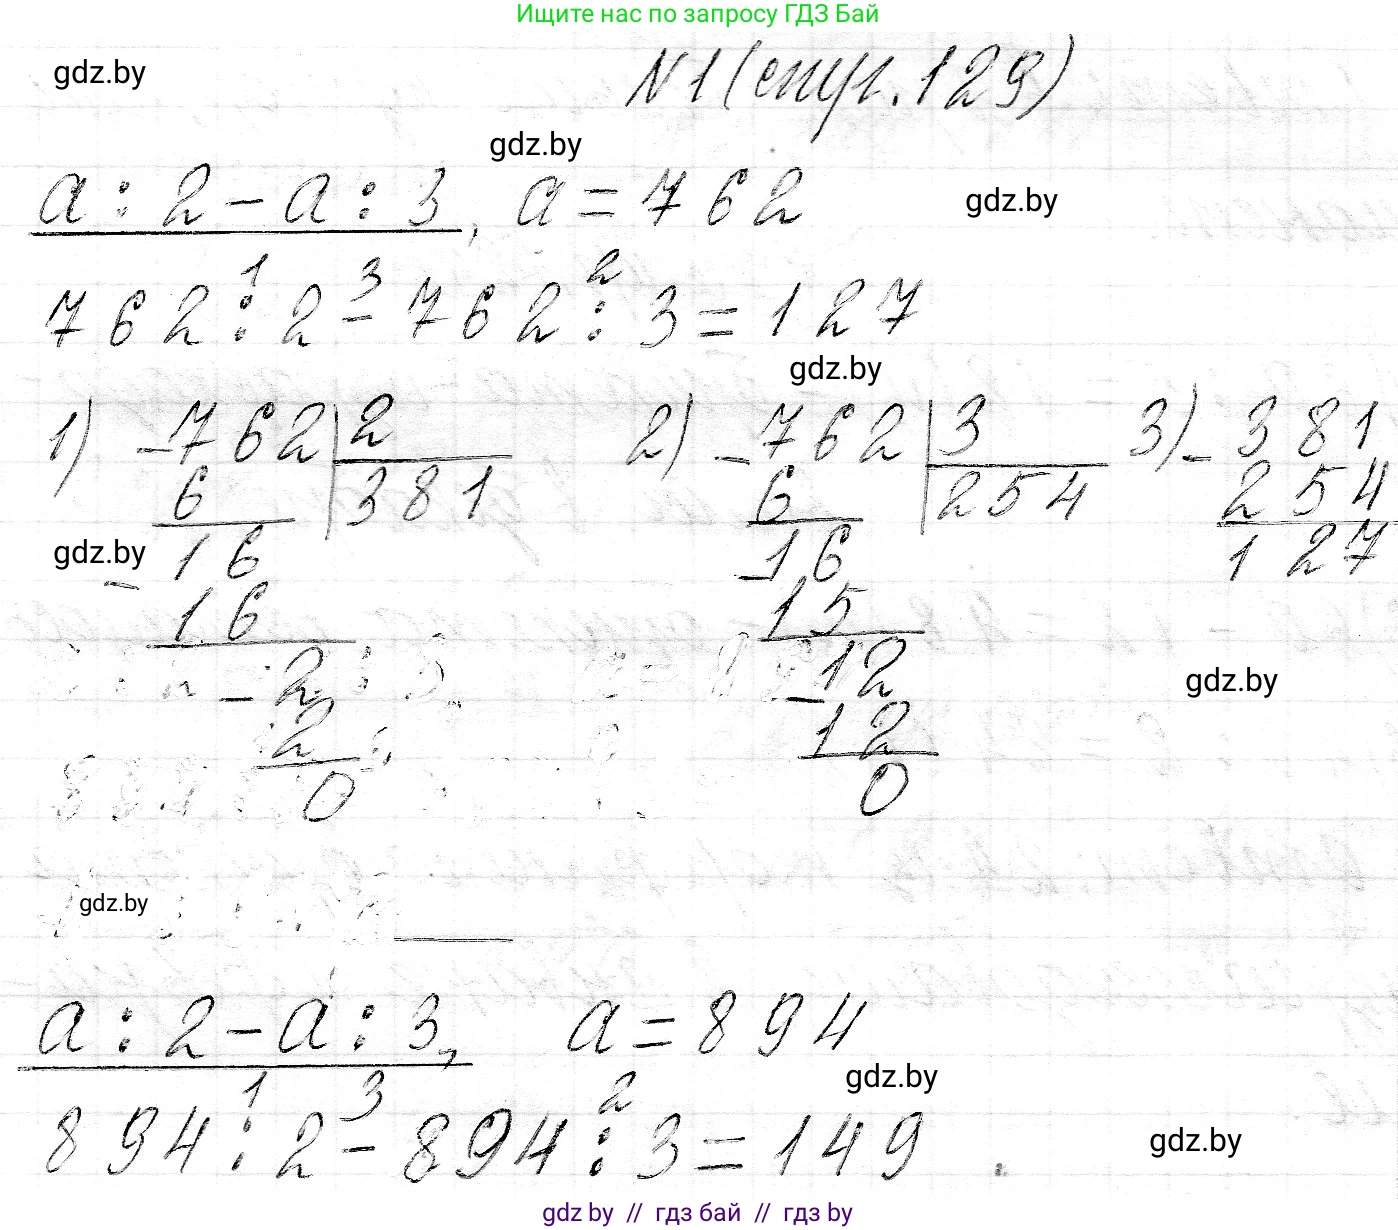 Ищите нас по запросу ГДЗ Бай
gdz.by
№1 (стр. 129)
gdz.by
a : 2 - a : 3, a = 762
gdz.by
1 3 2
762 : 2 - 762 : 3 = 127
gdz.by
1) - 762 | 2 2) - 762 | 3 3) - 381
6 | 381 6 | 254 254
gdz.by
- 16 - 16 127
16 15
gdz.by
- 2 - 12
2 12
0 0
gdz.by
a : 2 - a : 3, a = 894
gdz.by
1 3 2
894 : 2 - 894 : 3 = 149
gdz.by
gdz by // гдз бай // гдз by